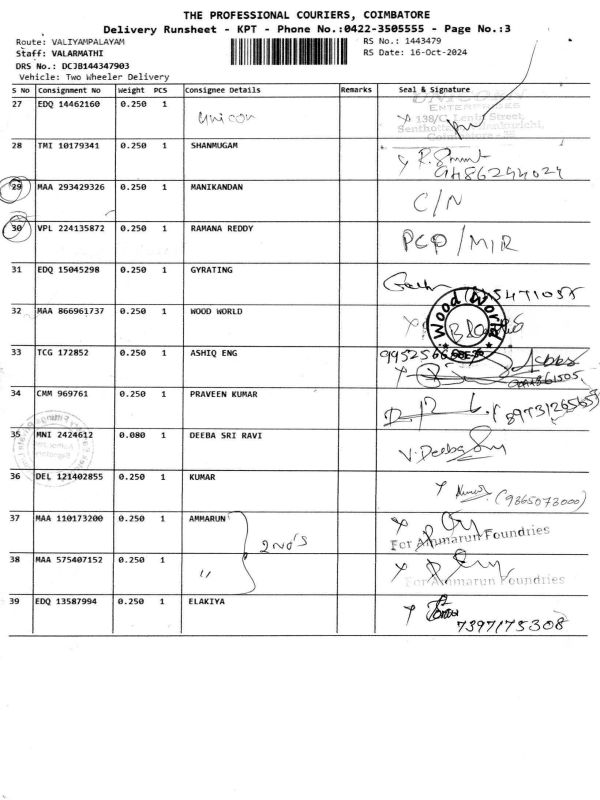 THE PROFESSIONAL COURIERS, COIMBATORE
Delivery Runsheet - KPT - Phone No.:0422-3505555 - Page No.:3
Route: VALIYAMPALAYAM RS No.: 1443479
Staff: VALARMATHI RS Date: 16-Oct-2024
DRS No.: DCJB144347903
Vehicle: Two Wheeler Delivery
S No Consignment No Weight PCS Consignee Details Remarks Seal & Signature
27 EDQ 14462160 0.250 1 Unicon
ENTERPRISES
138/C, Lenin Street,
28 TMI 10179341 0.250 1 SHANMUGAM
29 MAA 293429326 0.250 1 MANIKANDAN C/N
30 VPL 224135872 0.250 1 RAMANA REDDY PCP/MIR
31 EDQ 15045298 0.250 1 GYRATING
32 MAA 866961737 0.250 1 WOOD WORLD Wood World
33 TCG 172852 0.250 1 ASHIQ ENG
34 CMM 969761 0.250 1 PRAVEEN KUMAR
35 MNI 2424612 0.080 1 DEEBA SRI RAVI V. Deeba
36 DEL 121402855 0.250 1 KUMAR (9865073000)
37 MAA 110173200 0.250 1 AMMARUN 2NO'S
For Ammarun Foundries
38 MAA 575407152 0.250 1 "
For Ammarun Foundries
39 EDQ 13587994 0.250 1 ELAKIYA
7397175308